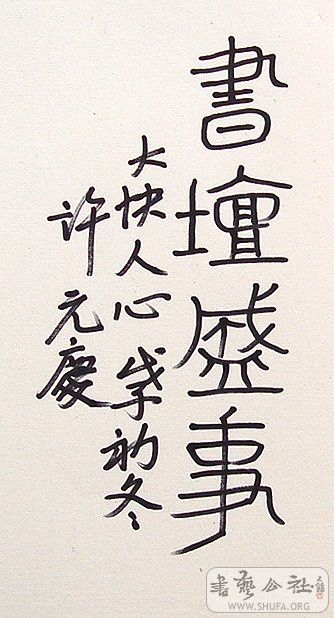 書壇盛事
大快人心 戊子初冬
许元慶
書藝公社
WWW.SHUFA.ORG